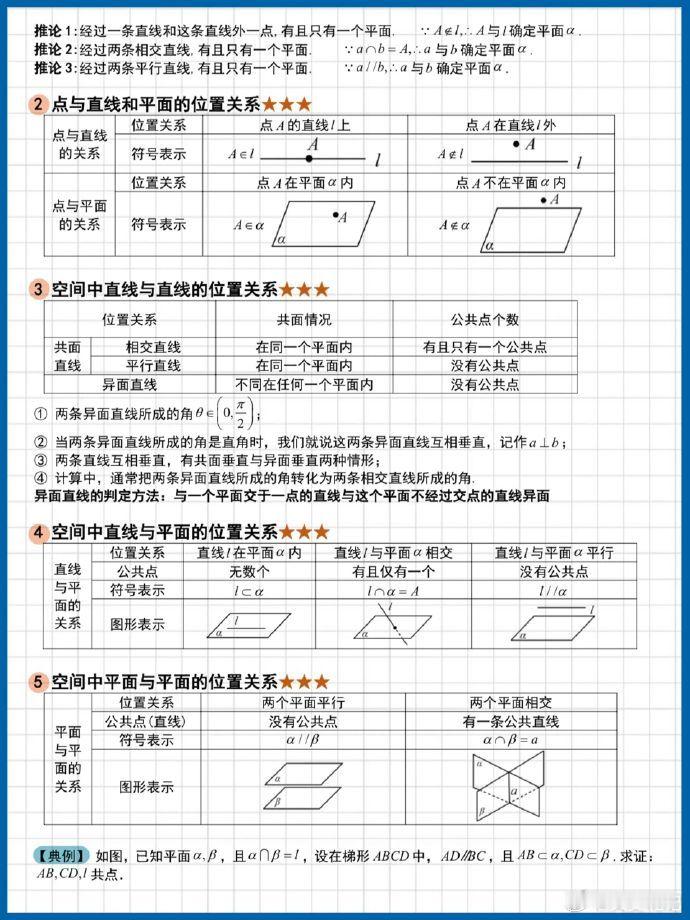 推论1:经过一条直线和这条直线外一点,有且只有一个平面. ∵A∉l,∴A与l确定平面α.
推论2:经过两条相交直线,有且只有一个平面. ∵a∩b=A,∴a与b确定平面α.
推论3:经过两条平行直线,有且只有一个平面. ∵a//b,∴a与b确定平面α.
2 点与直线和平面的位置关系★★★
点与直线的关系 位置关系 点A的直线l上 点A在直线l外
符号表示 A∈l A l A∉l A l
点与平面的关系 位置关系 点A在平面α内 点A不在平面α内
符号表示 A∈α A α A∉α A α
3 空间中直线与直线的位置关系★★★
位置关系 共面情况 公共点个数
共面直线 相交直线 在同一个平面内 有且只有一个公共点
平行直线 在同一个平面内 没有公共点
异面直线 不同在任何一个平面内 没有公共点
① 两条异面直线所成的角θ∈(0,π/2];
② 当两条异面直线所成的角是直角时，我们就说这两条异面直线互相垂直，记作a⊥b;
③ 两条直线互相垂直，有共面垂直与异面垂直两种情形;
④ 计算中，通常把两条异面直线所成的角转化为两条相交直线所成的角.
异面直线的判定方法：与一个平面交于一点的直线与这个平面不经过交点的直线异面
4 空间中直线与平面的位置关系★★★
直线与平面的关系 位置关系 直线l在平面α内 直线l与平面α相交 直线l与平面α平行
公共点 无数个 有且仅有一个 没有公共点
符号表示 l⊂α l∩α=A l//α
图形表示 l α l α l α
5 空间中平面与平面的位置关系★★★
平面与平面的关系 位置关系 两个平面平行 两个平面相交
公共点(直线) 没有公共点 有一条公共直线
符号表示 α//β α∩β=a
图形表示 α β α a β
【典例】如图，已知平面α,β，且α∩β=l，设在梯形ABCD中，AD//BC，且AB⊂α,CD⊂β.求证:
AB,CD,l共点.